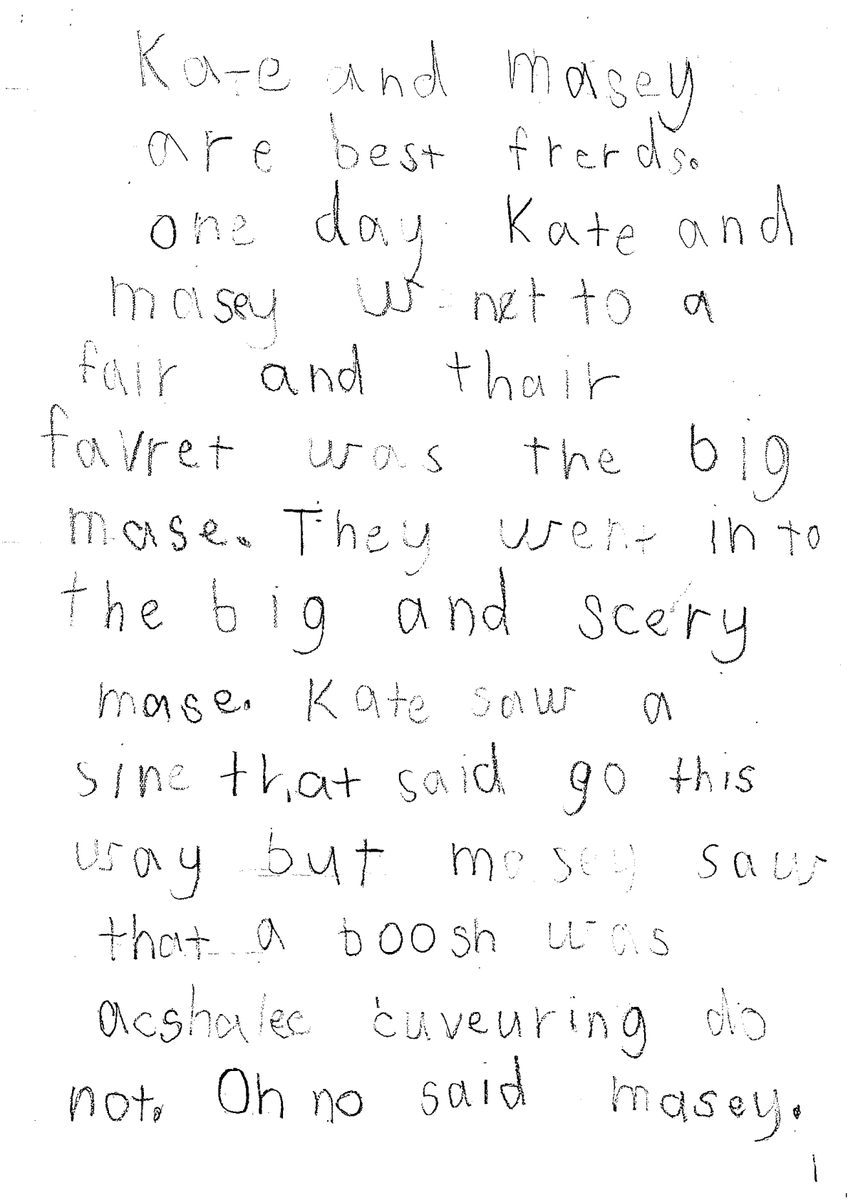 Kate and masey
are best frerds.
one day Kate and
masey w net to a
fair and thair
favret was the big
mase. They went in to
the big and scery
mase. Kate saw a
sine that said go this
way but masey saw
that a boosh was
acshalec cuveuring do
not. Oh no said masey.
1